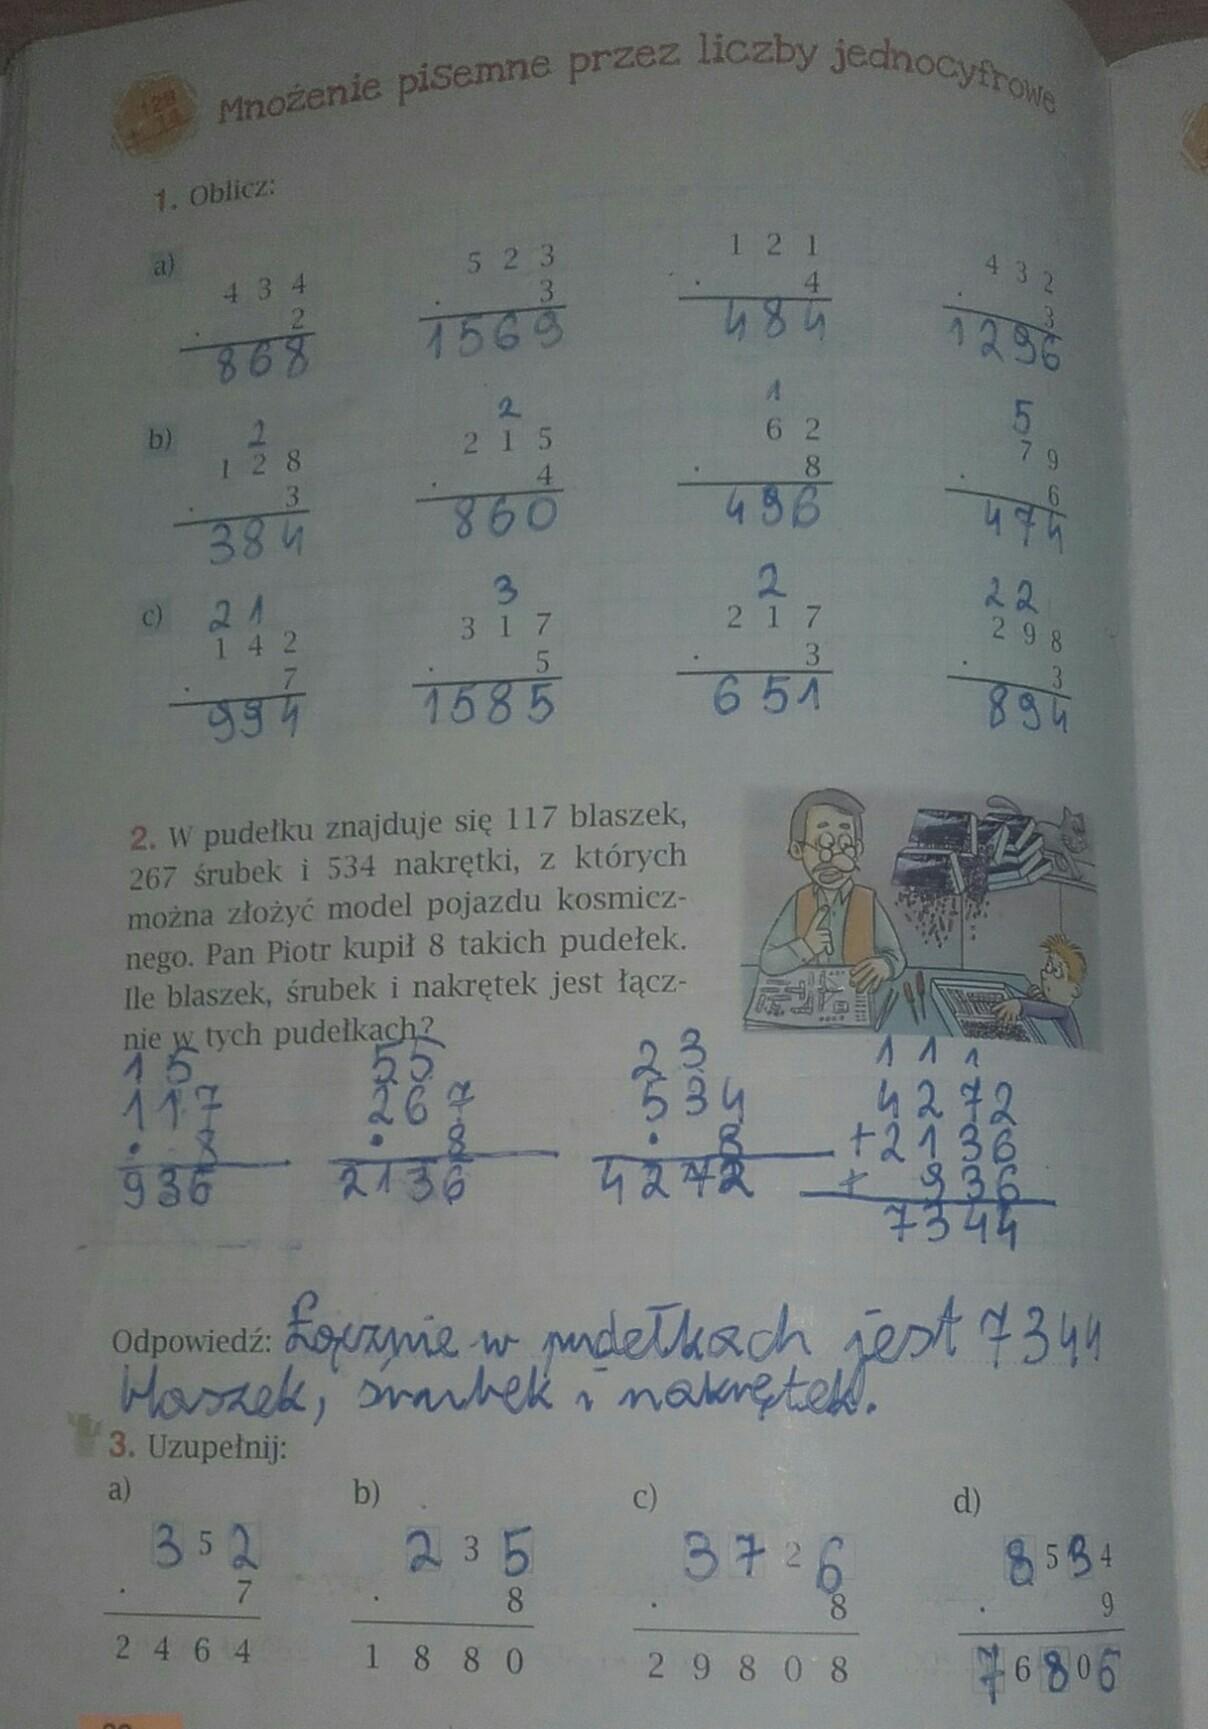 128
· 14
Mnożenie pisemne przez liczby jednocyfrowe
1. Oblicz:
a)
4 3 4
· 2
868
5 2 3
· 3
1569
1 2 1
· 4
484
4 3 2
· 3
1296
b)
2
1 2 8
· 3
384
2
2 1 5
· 4
860
1
6 2
· 8
496
5
7 9
· 6
474
c)
2 1
1 4 2
· 7
994
3
3 1 7
· 5
1585
2
2 1 7
· 3
651
2 2
2 9 8
· 3
894
2. W pudełku znajduje się 117 blaszek,
267 śrubek i 534 nakrętki, z których
można złożyć model pojazdu kosmicz-
nego. Pan Piotr kupił 8 takich pudełek.
Ile blaszek, śrubek i nakrętek jest łącz-
nie w tych pudełkach?
1 5
117
· 8
936
55
267
· 8
2136
2 3
534
· 8
4272
1 1 1
4272
+2136
+ 936
7344
Odpowiedź: Łącznie w pudełkach jest 7344
blaszek, śrubek i nakrętek.
3. Uzupełnij:
a)
3 5 2
· 7
2 4 6 4
b)
2 3 5
· 8
1 8 8 0
c)
3 7 2 6
· 8
2 9 8 0 8
d)
8 5 3 4
· 9
7 6 8 0 6